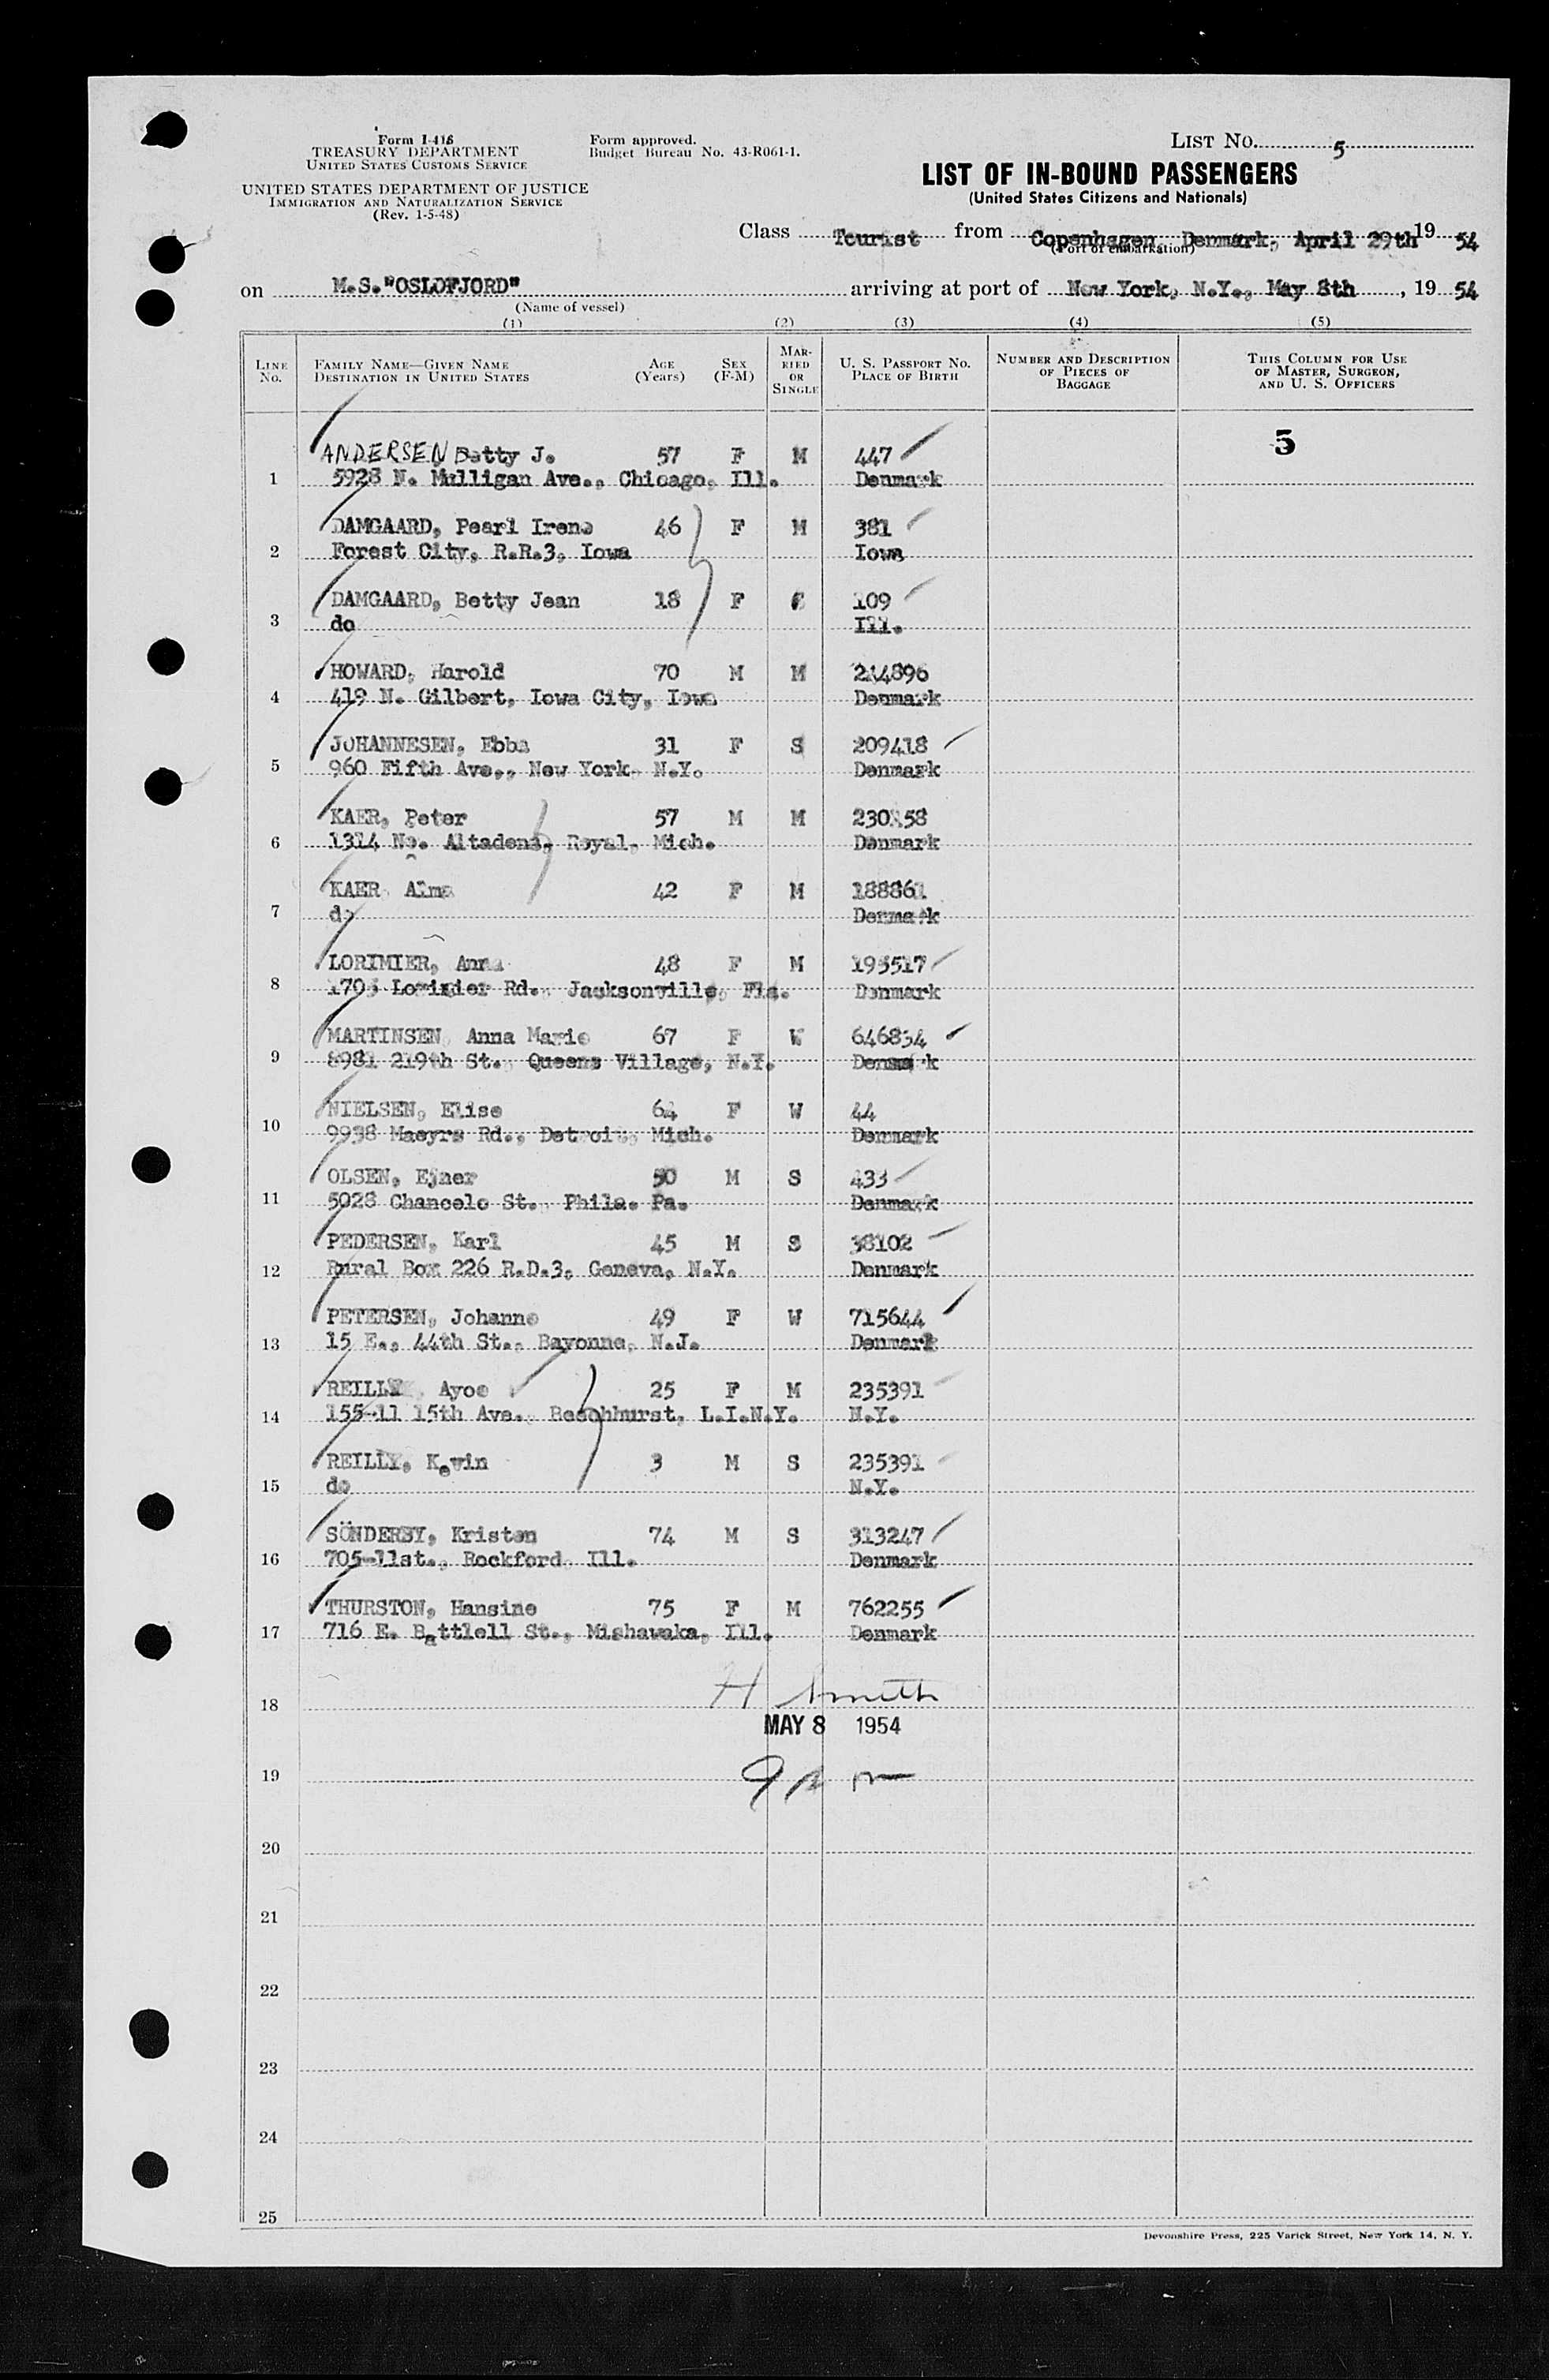 Form I-418
TREASURY DEPARTMENT
UNITED STATES CUSTOMS SERVICE
UNITED STATES DEPARTMENT OF JUSTICE
IMMIGRATION AND NATURALIZATION SERVICE
(Rev. 1-5-48)
Form approved.
Budget Bureau No. 43-R061-1.
LIST NO. 5
LIST OF IN-BOUND PASSENGERS
(United States Citizens and Nationals)
Class Tourist from Copenhagen, Denmark, April 29th 19 54
(Port of embarkation)
on M.S."OSLOFJORD" arriving at port of New York, N.Y., May 8th, 19 54
(Name of vessel)
(1) (2) (3) (4) (5)
LINE NO. FAMILY NAME—GIVEN NAME DESTINATION IN UNITED STATES AGE (Years) SEX (F-M) MARRIED OR SINGLE U. S. PASSPORT NO. PLACE OF BIRTH NUMBER AND DESCRIPTION OF PIECES OF BAGGAGE THIS COLUMN FOR USE OF MASTER, SURGEON, AND U. S. OFFICERS
5
ANDERSEN Betty J. 57 F M 447
1 5928 N. Mulligan Ave., Chicago, Ill. Denmark
DAMGAARD, Pearl Irene 46 F M 381
2 Forest City, R.R.3, Iowa Iowa
DAMGAARD, Betty Jean 18 F 109
3 do Ill.
HOWARD, Harold 70 M M 214896
4 419 N. Gilbert, Iowa City, Iowa Denmark
JOHANNESEN, Ebba 31 F S 209418
5 960 Fifth Ave., New York, N.Y. Denmark
KAER, Peter 57 M M
6 1314 No. Altadena, Royal, Mich. Denmark
KAER Alma 42 F M 188861
7 do Denmark
LORIMIER, Anna 48 F M 195517
8 Lorimier Rd., Jacksonville, Fla. Denmark
MARTINSEN, Anna Marie 67 F W 646834
9 8981 219th St., Queens Village, N.Y. Denmark
NIELSEN, Elise 64 F W 44
10 9938 Maeyrs Rd., Detroit, Mich. Denmark
OLSEN, Ejner 50 M S 433
11 5028 Chancelo St., Phila. Pa. Denmark
PEDERSEN, Karl 45 M S 38102
12 Rural Box 226 R.D.3, Geneva, N.Y. Denmark
PETERSEN, Johanne 49 F W 715644
13 15 E., 44th St., Bayonne, N.J. Denmark
REILLY, Ayoe 25 F M 235391
14 155-11 15th Ave., Beachhurst, L.I.N.Y. N.Y.
REILLY, Kevin 3 M S 235391
15 do N.Y.
SÖNDERBY, Kristen 74 M S 313247
16 705-11st., Rockford, Ill. Denmark
THURSTON, Hansine 75 F M 762255
17 716 E. Battlell St., Mishawaka, Ill. Denmark
H Smith
18
MAY 8 1954
19
20
21
22
23
24
25
Devonshire Press, 225 Varick Street, New York 14, N. Y.